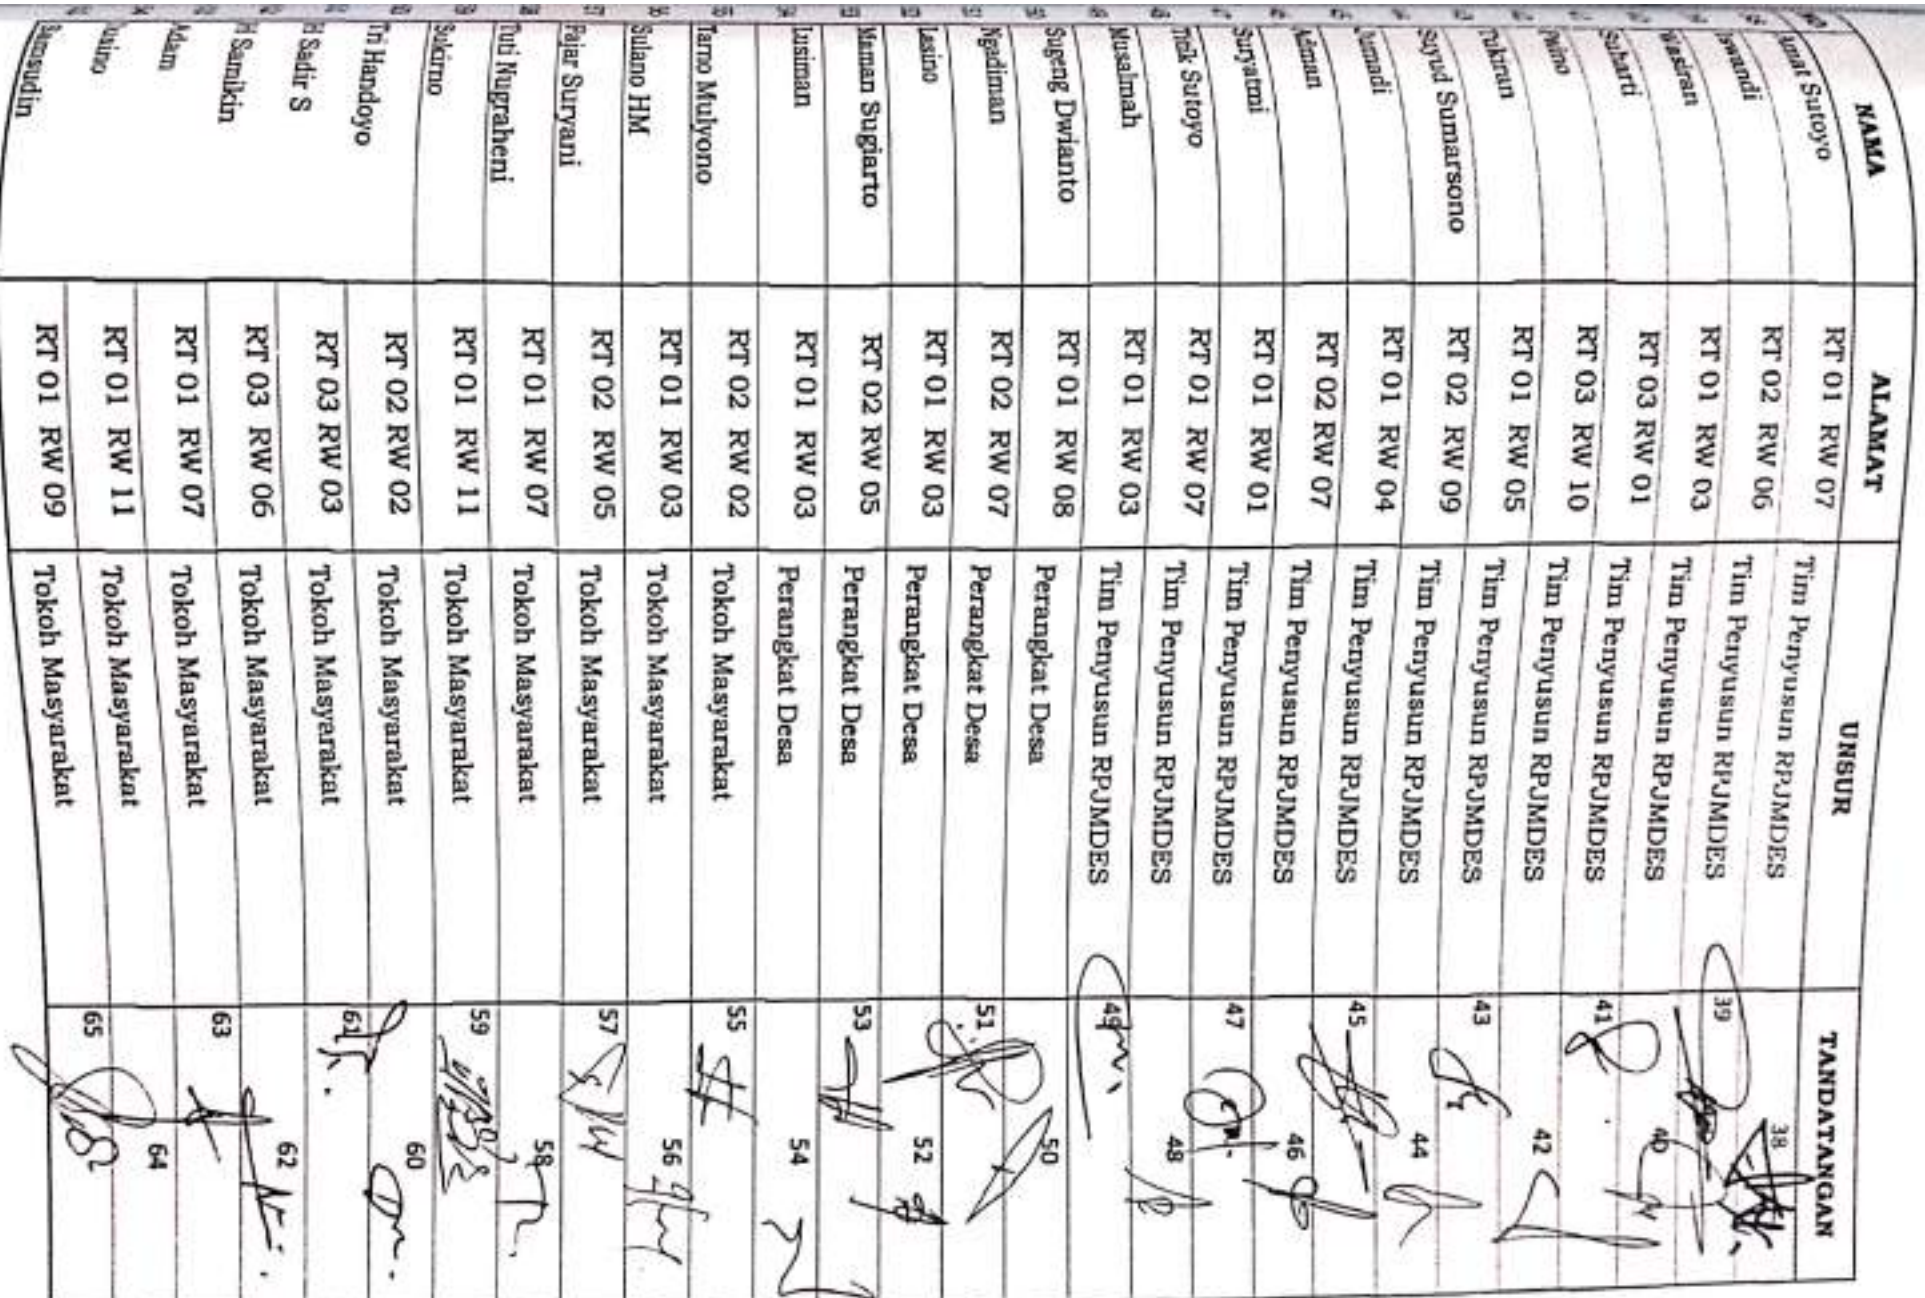 NAMA ALAMAT UNSUR TANDATANGAN
Amat Sutoyo RT 01 RW 07 Tim Penyusun RPJMDES 38
Iswandi RT 02 RW 06 Tim Penyusun RPJMDES 39
Wasiran RT 01 RW 03 Tim Penyusun RPJMDES 40
Subarti RT 03 RW 01 Tim Penyusun RPJMDES 41
RT 03 RW 10 Tim Penyusun RPJMDES 42
Tukiran RT 01 RW 05 Tim Penyusun RPJMDES 43
Suyud Sumarsono RT 02 RW 09 Tim Penyusun RPJMDES 44
Jumadi RT 01 RW 04 Tim Penyusun RPJMDES 45
Adman RT 02 RW 07 Tim Penyusun RPJMDES 46
Suryatmi RT 01 RW 01 Tim Penyusun RPJMDES 47
Titik Sutoyo RT 01 RW 07 Tim Penyusun RPJMDES 48
Musalmah RT 01 RW 03 Tim Penyusun RPJMDES 49
Sugeng Dwianto RT 01 RW 08 Perangkat Desa 50
Ngadiman RT 02 RW 07 Perangkat Desa 51
Lasino RT 01 RW 03 Perangkat Desa 52
Maman Sugiarto RT 02 RW 05 Perangkat Desa 53
Lusiman RT 01 RW 03 Perangkat Desa 54
Tarno Mulyono RT 02 RW 02 Tokoh Masyarakat 55
Sulano HM RT 01 RW 03 Tokoh Masyarakat 56
Fajar Suryani RT 02 RW 05 Tokoh Masyarakat 57
Tuti Nugraheni RT 01 RW 07 Tokoh Masyarakat 58
Sukirno RT 01 RW 11 Tokoh Masyarakat 59
Tri Handoyo RT 02 RW 02 Tokoh Masyarakat 60
H Sadir S RT 03 RW 03 Tokoh Masyarakat 61
H Samikin RT 03 RW 06 Tokoh Masyarakat 62
Adam RT 01 RW 07 Tokoh Masyarakat 63
RT 01 RW 11 Tokoh Masyarakat 64
Samsudin RT 01 RW 09 Tokoh Masyarakat 65